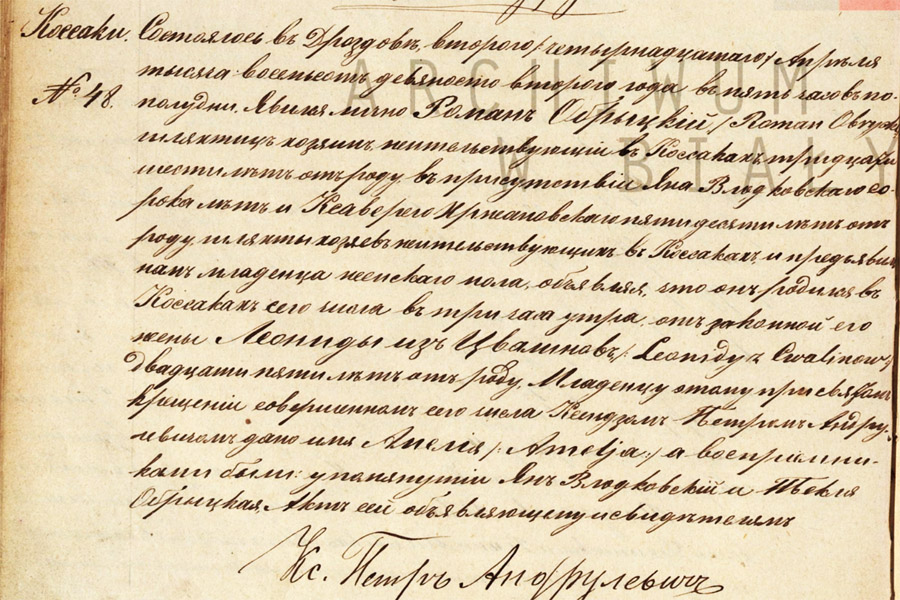 Коссаки. Состоялось въ Дроздовѣ, второго /четырнадцатаго/ Апрѣля
тысяча восемьсотъ девяносто второго года въ пять часовъ по-
№ 48. полудни. Явился лично Романъ Обрыцкій /Roman Obrycki/
шляхтичъ хозяинъ жительствующій въ Коссакахъ тридцати
шести лѣтъ отъ роду, въ присутствіи Яна Влодковскаго со-
рока лѣтъ и Ксаверего Хржановскаго пятидесяти лѣтъ отъ
роду, шляхты хозяевъ жительствующихъ въ Коссакахъ, и предъявилъ
намъ младенца женскаго пола, объявляя, что онъ родился въ
Коссакахъ сего числа въ три часа утра, отъ законной его
жены Леониды изъ Цвалиновъ /: Leonidy z Cwalinow :/
двадцати пяти лѣтъ отъ роду. Младенцу этому при святомъ
крещеніи совершенномъ сего числа Ксендзомъ Петромъ Андру-
левичомъ дано имя Амелія /: Amelja :/ а воспріемни-
ками были: упомянутый Янъ Влодковскій и Текля
Обрыцкая. Актъ сей объявляющему и свидѣтелямъ
Кс. Петръ Андрулевичъ
ARCHIWUM
W BIAŁY